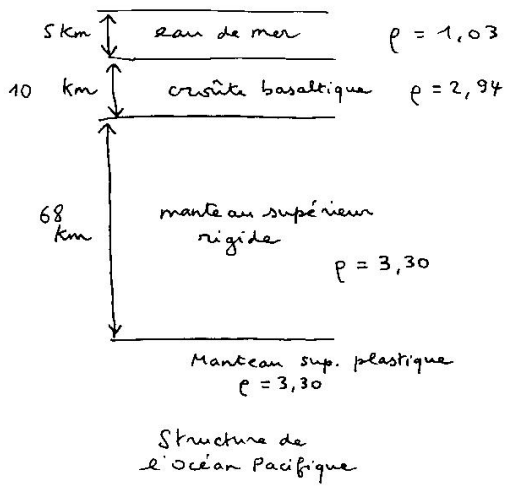 5 km eau de mer ρ = 1,03
10 km croûte basaltique ρ = 2,94
68 km
manteau supérieur
rigide
ρ = 3,30
Manteau sup. plastique
ρ = 3,30
Structure de
l'Océan Pacifique